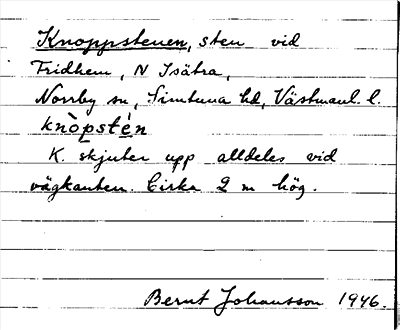 Knoppstenen, sten vid
Fridhem, N Isätra,
Norrby sn, Simtuna hd, Västmanl. l.
knò̱pstè̱n
K. skjuter upp alldeles vid
vägkanten. Cirka 2 m hög.
Bernt Johansson 1946.